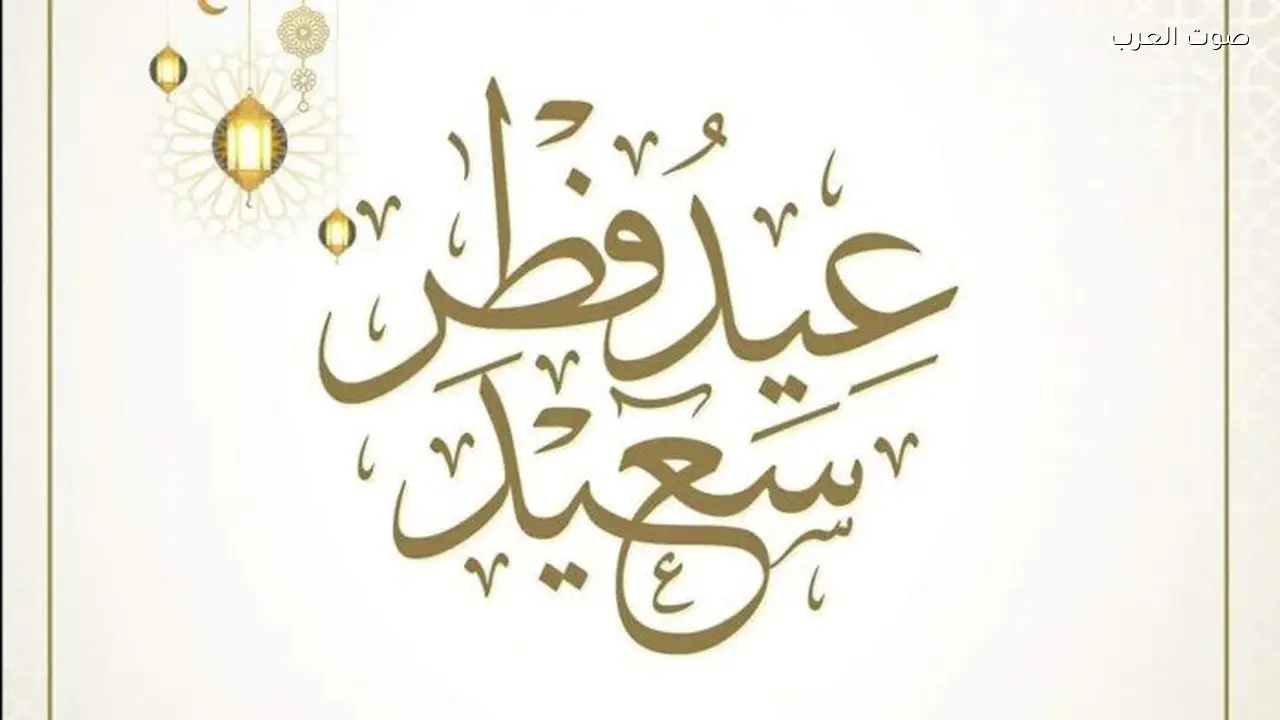 صوت العرب
عِيدُ فِطْرٍ
سَعِيْدٍ